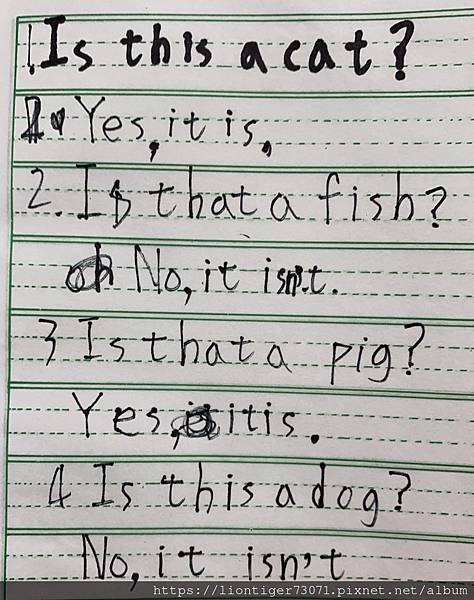 1. Is this a cat?
Yes, it is,
2. Is that a fish?
No, it isn't.
3 Is that a pig?
Yes, it is.
4 Is this a dog?
No, it isn't
https://liontiger73071.pixnet.net/album